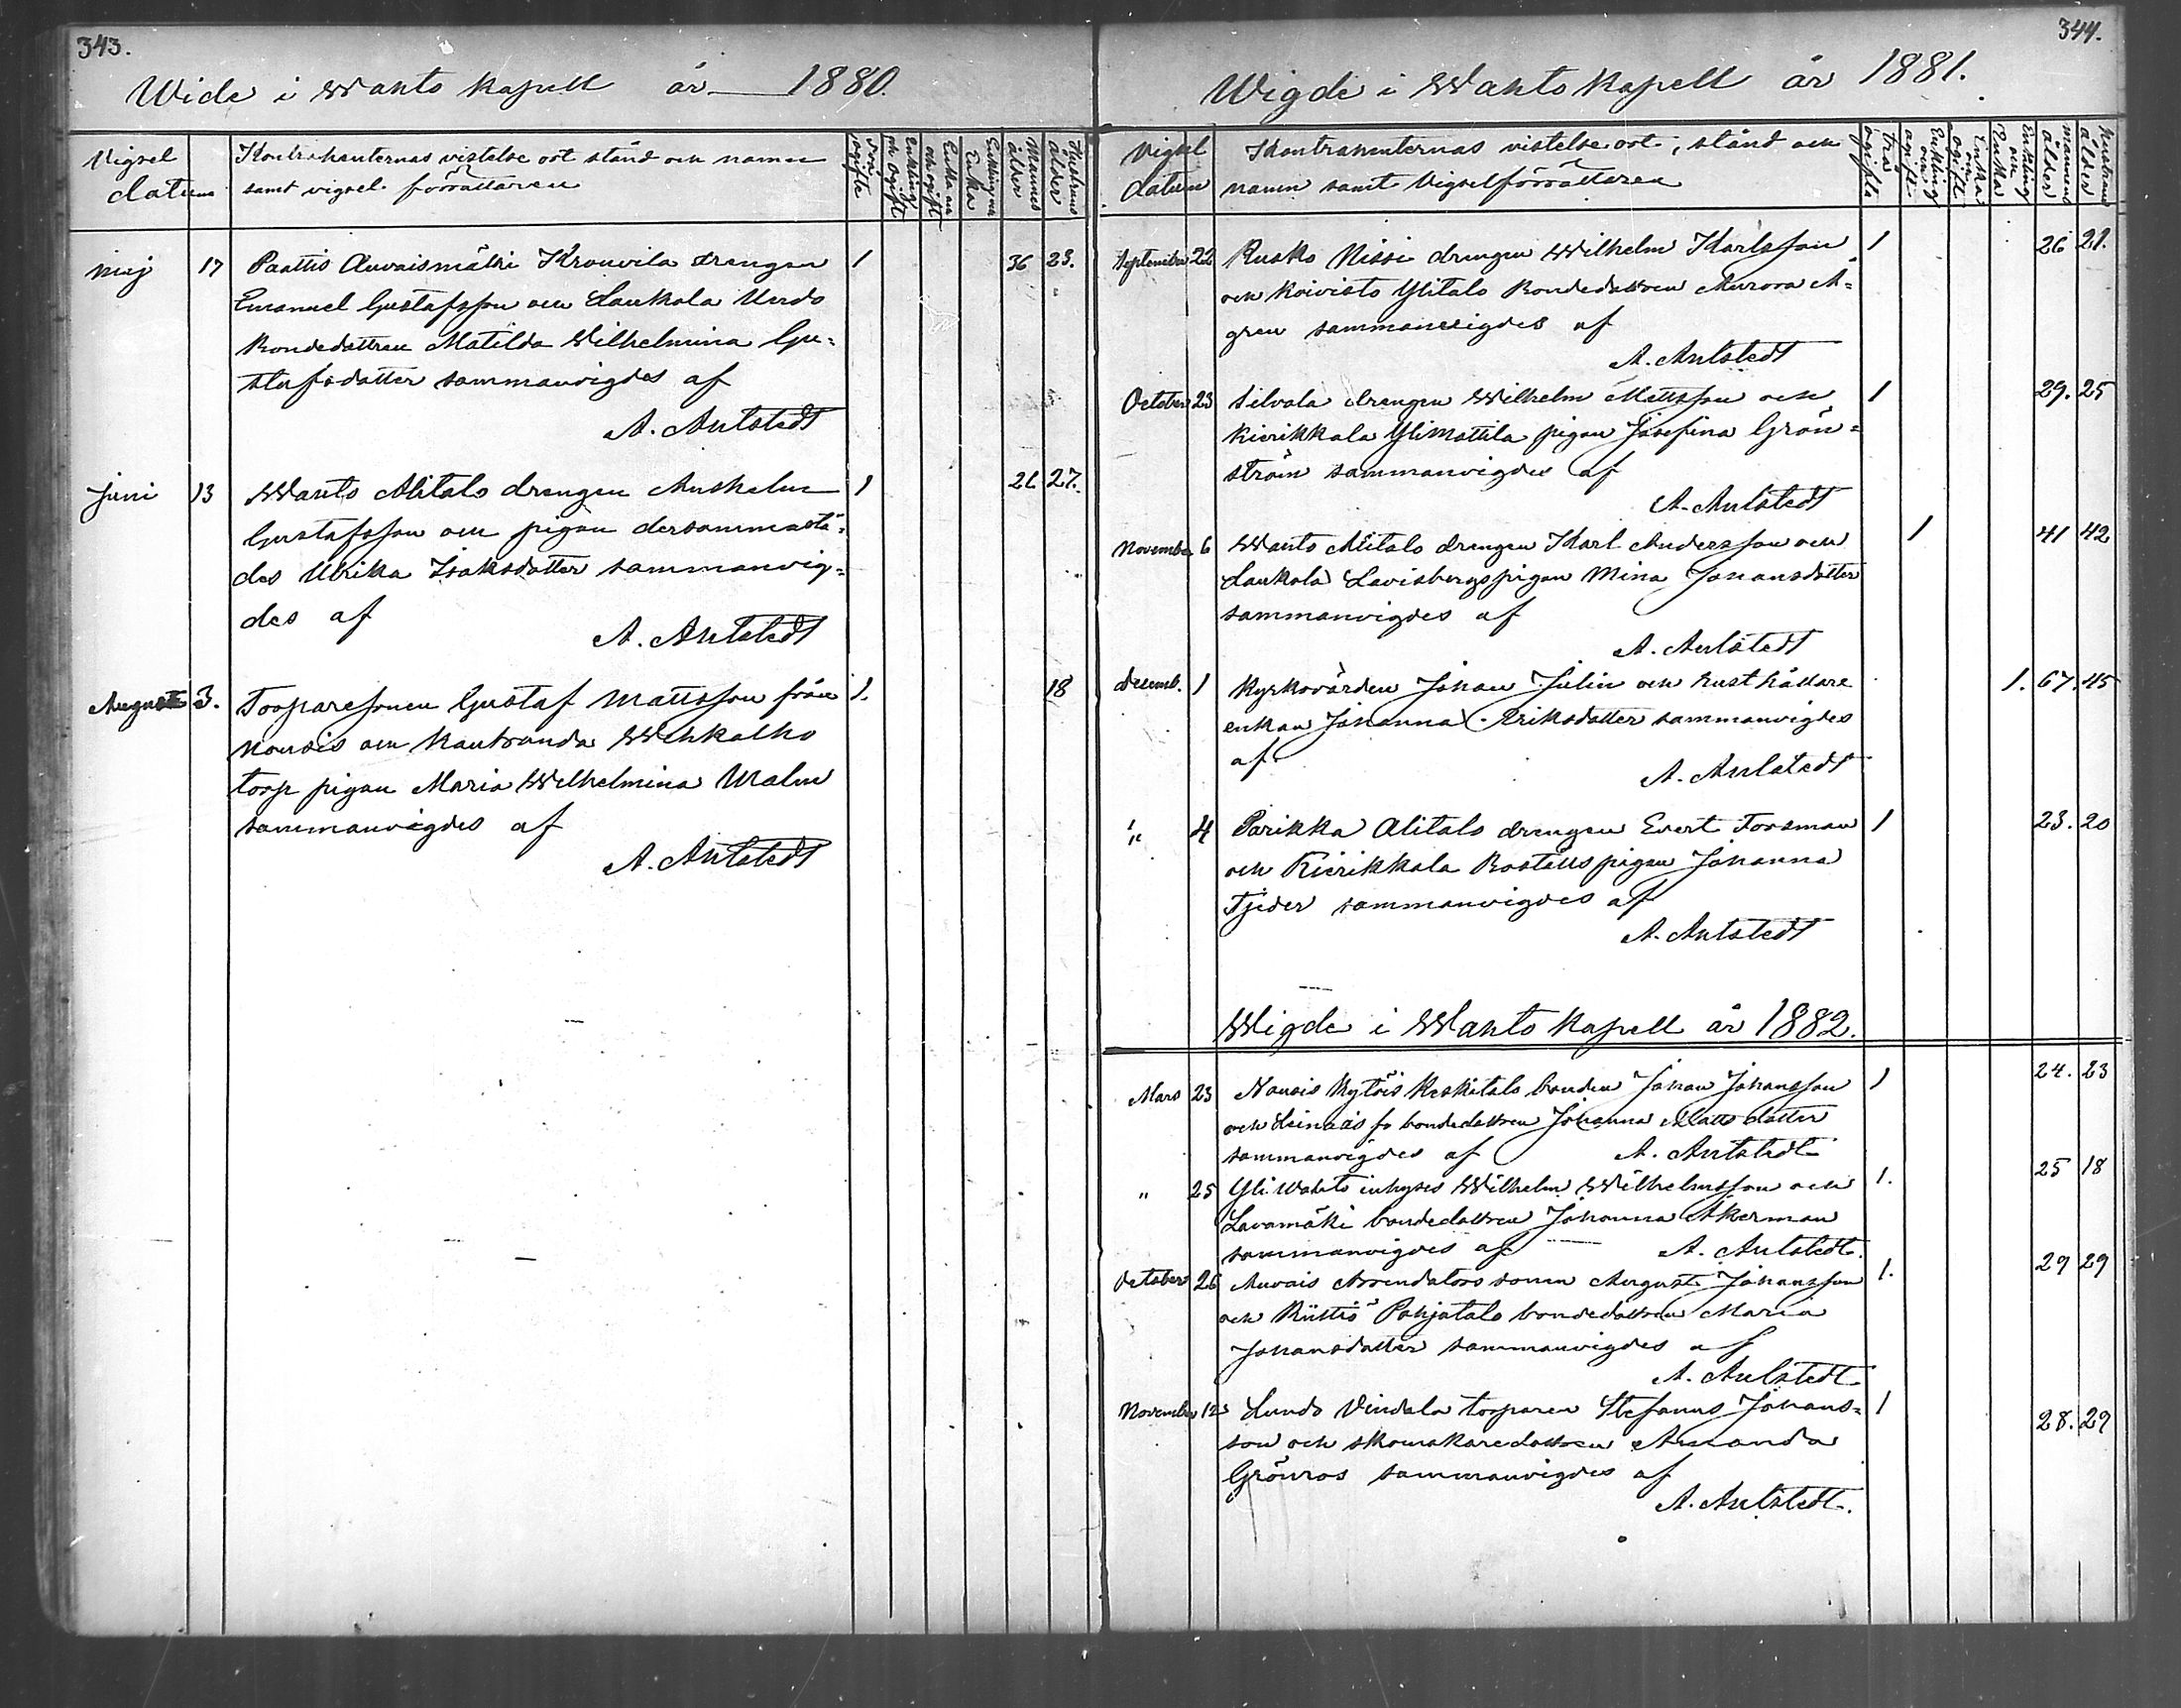 343.
Wide i Wahto Kapell år 1880.
Vigsel datum
Kontrahenternas vistelse ort stånd och namn
samt vigsel förrättaren
Mannes ålder
Hustrus ålder
maj 17 Paattis Auvaismäki Krouvila drengen 1 36 23.
Emanuel Gustafsson och Laukola
Bondedottren Matilda Wilhelmina Gu-
stafsdotter sammanvigdes af
A. Aulstedt
Juni 13 Wahto Alitalo drengen 1 21 27.
Gustafsson och pigan dersammastä-
des Ulrika Isaksdotter sammanvig-
des af
A. Aulstedt
Augusti 3. Torparesonen Gustaf Mattsson från 1. 18
Nousis och
torp pigan Maria Wilhelmina Malm
sammanvigdes af
A. Aulstedt
344.
Wigde i Wahto Kapell år 1881.
Vigsel datum
Kontrahenternas vistelse ort, stånd och
namn samt Vigselförrättaren
Två ogifte
Enkling och Enka
mannens ålder
Hustruns ålder
September 22 Rusko Nissi drengen Wilhelm Karlsson 1 26 21.
och Koivisto Ylitalo Bondedottren Aurora A-
gren sammanvigdes af
A. Aulstedt
October 23 Silvola drengen Wilhelm Mattsson och 1 29. 25
Kierikkala YliMattila pigan Josefina Grön-
ström sammanvigdes af
A. Aulstedt
November 6 Wahto Alitalo drengen Karl Andersson och 1 41 42
Laukola pigan Mina Johansdotter
sammanvigdes af
A. Aulstedt
Decemb. 1 Kyrkovärden Johan Julin och rusthållare 1. 67. 45
enkan Johanna Eriksdotter sammanvigdes
af
A. Aulstedt
" 4 Parikka Alitalo drengen Evert Forsman 1 23. 20
och Kierikkala Boställs pigan Johanna
Tjeder sammanvigdes af
A. Aulstedt
Wigde i Wahto Kapell år 1882.
Mars 23 Nousis Kytöis Keskitalo bonden Johan Johansson 1 24. 23
och bondedottren Johanna Matts dotter
sammanvigdes af A. Aulstedt
" 25 Yli Wahto inhyses Wilhelm Wilhelmsson och 1. 25 18
Lavamäki bondedottren Johanna Åkerman
sammanvigdes af A. Aulstedt.
October 26 Auvais Arrendators sonen August Johansson 1. 29 29
och Pohjatalo bondedottren Maria
Johansdotter sammanvigdes af
A. Aulstedt
November 12 Lundo Vindala torparen Stefanus Johans- 1 28. 29
son och skomakaredottren Amanda
Grönros sammanvigdes af
A. Aulstedt.